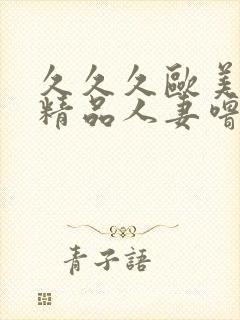 久久久歐美
精品人妻噜
青子語